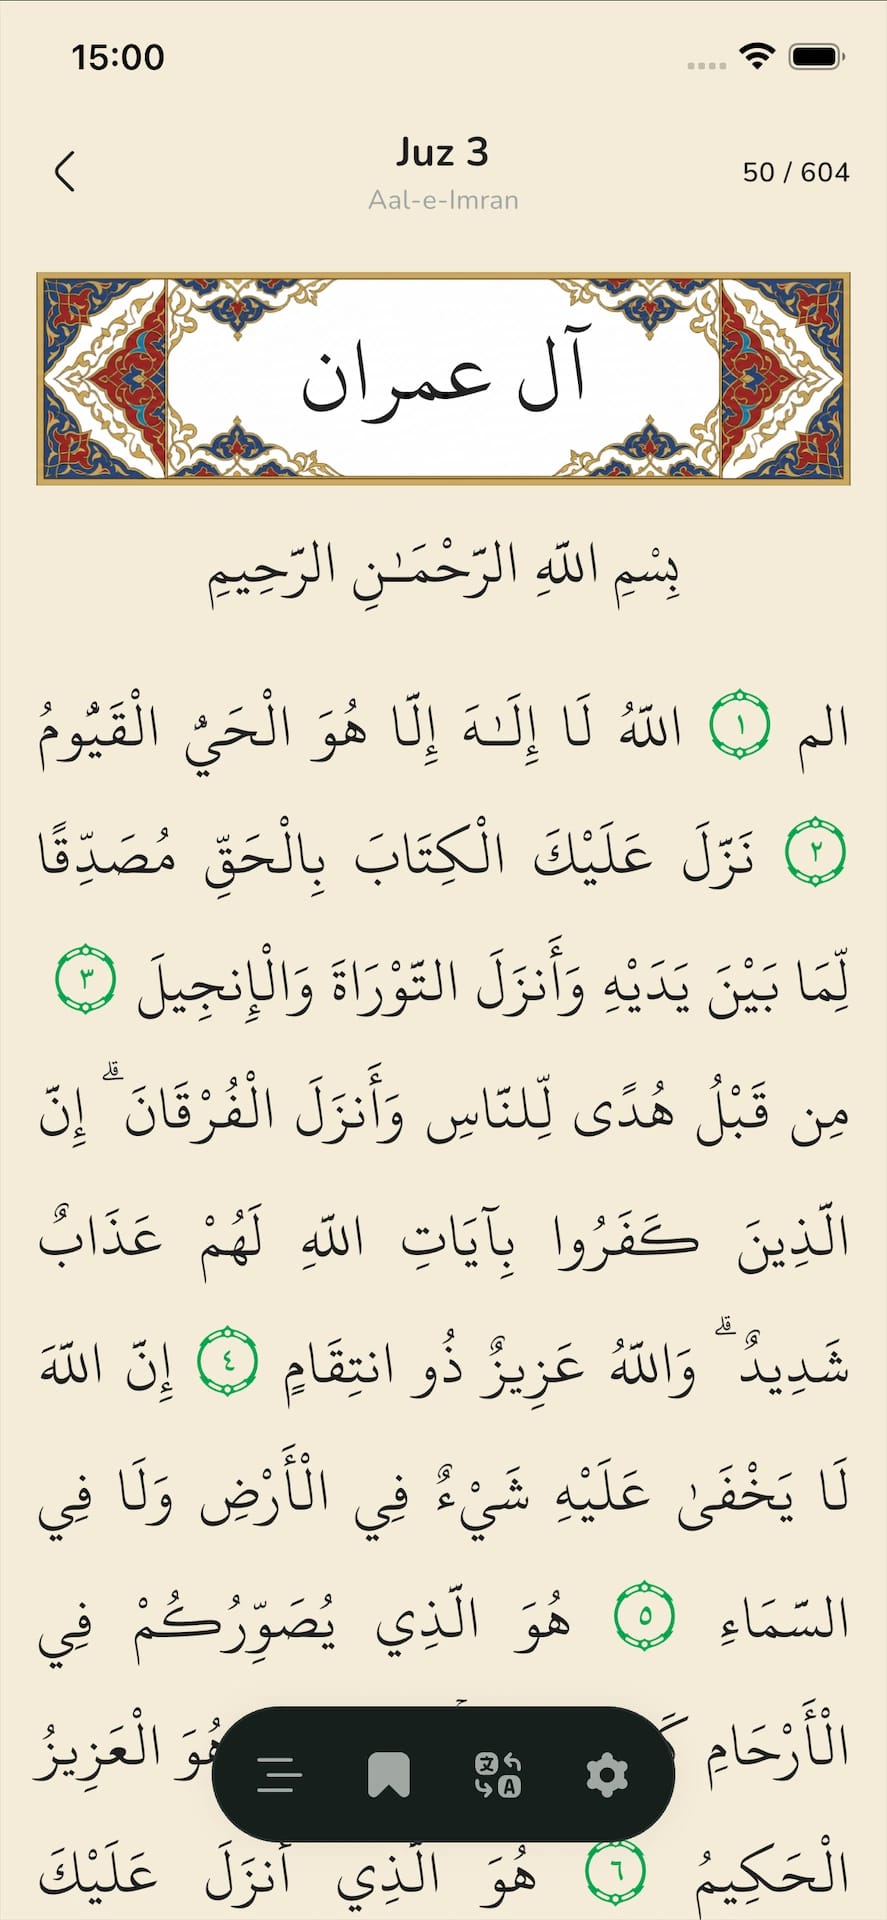 15:00
Juz 3
Aal-e-Imran
50 / 604
آل عمران
بِسْمِ اللَّهِ الرَّحْمَـٰنِ الرَّحِيمِ
الم ١ اللَّهُ لَا إِلَـٰهَ إِلَّا هُوَ الْحَيُّ الْقَيُّومُ
٢ نَزَّلَ عَلَيْكَ الْكِتَابَ بِالْحَقِّ مُصَدِّقًا
لِّمَا بَيْنَ يَدَيْهِ وَأَنزَلَ التَّوْرَاةَ وَالْإِنجِيلَ ٣
مِن قَبْلُ هُدًى لِّلنَّاسِ وَأَنزَلَ الْفُرْقَانَ ۗ إِنَّ
الَّذِينَ كَفَرُوا بِآيَاتِ اللَّهِ لَهُمْ عَذَابٌ
شَدِيدٌ ۗ وَاللَّهُ عَزِيزٌ ذُو انتِقَامٍ ٤ إِنَّ اللَّهَ
لَا يَخْفَىٰ عَلَيْهِ شَيْءٌ فِي الْأَرْضِ وَلَا فِي
السَّمَاءِ ٥ هُوَ الَّذِي يُصَوِّرُكُمْ فِي
الْأَرْحَامِ هُوَ الْعَزِيزُ
الْحَكِيمُ ٦ هُوَ الَّذِي أَنزَلَ عَلَيْكَ